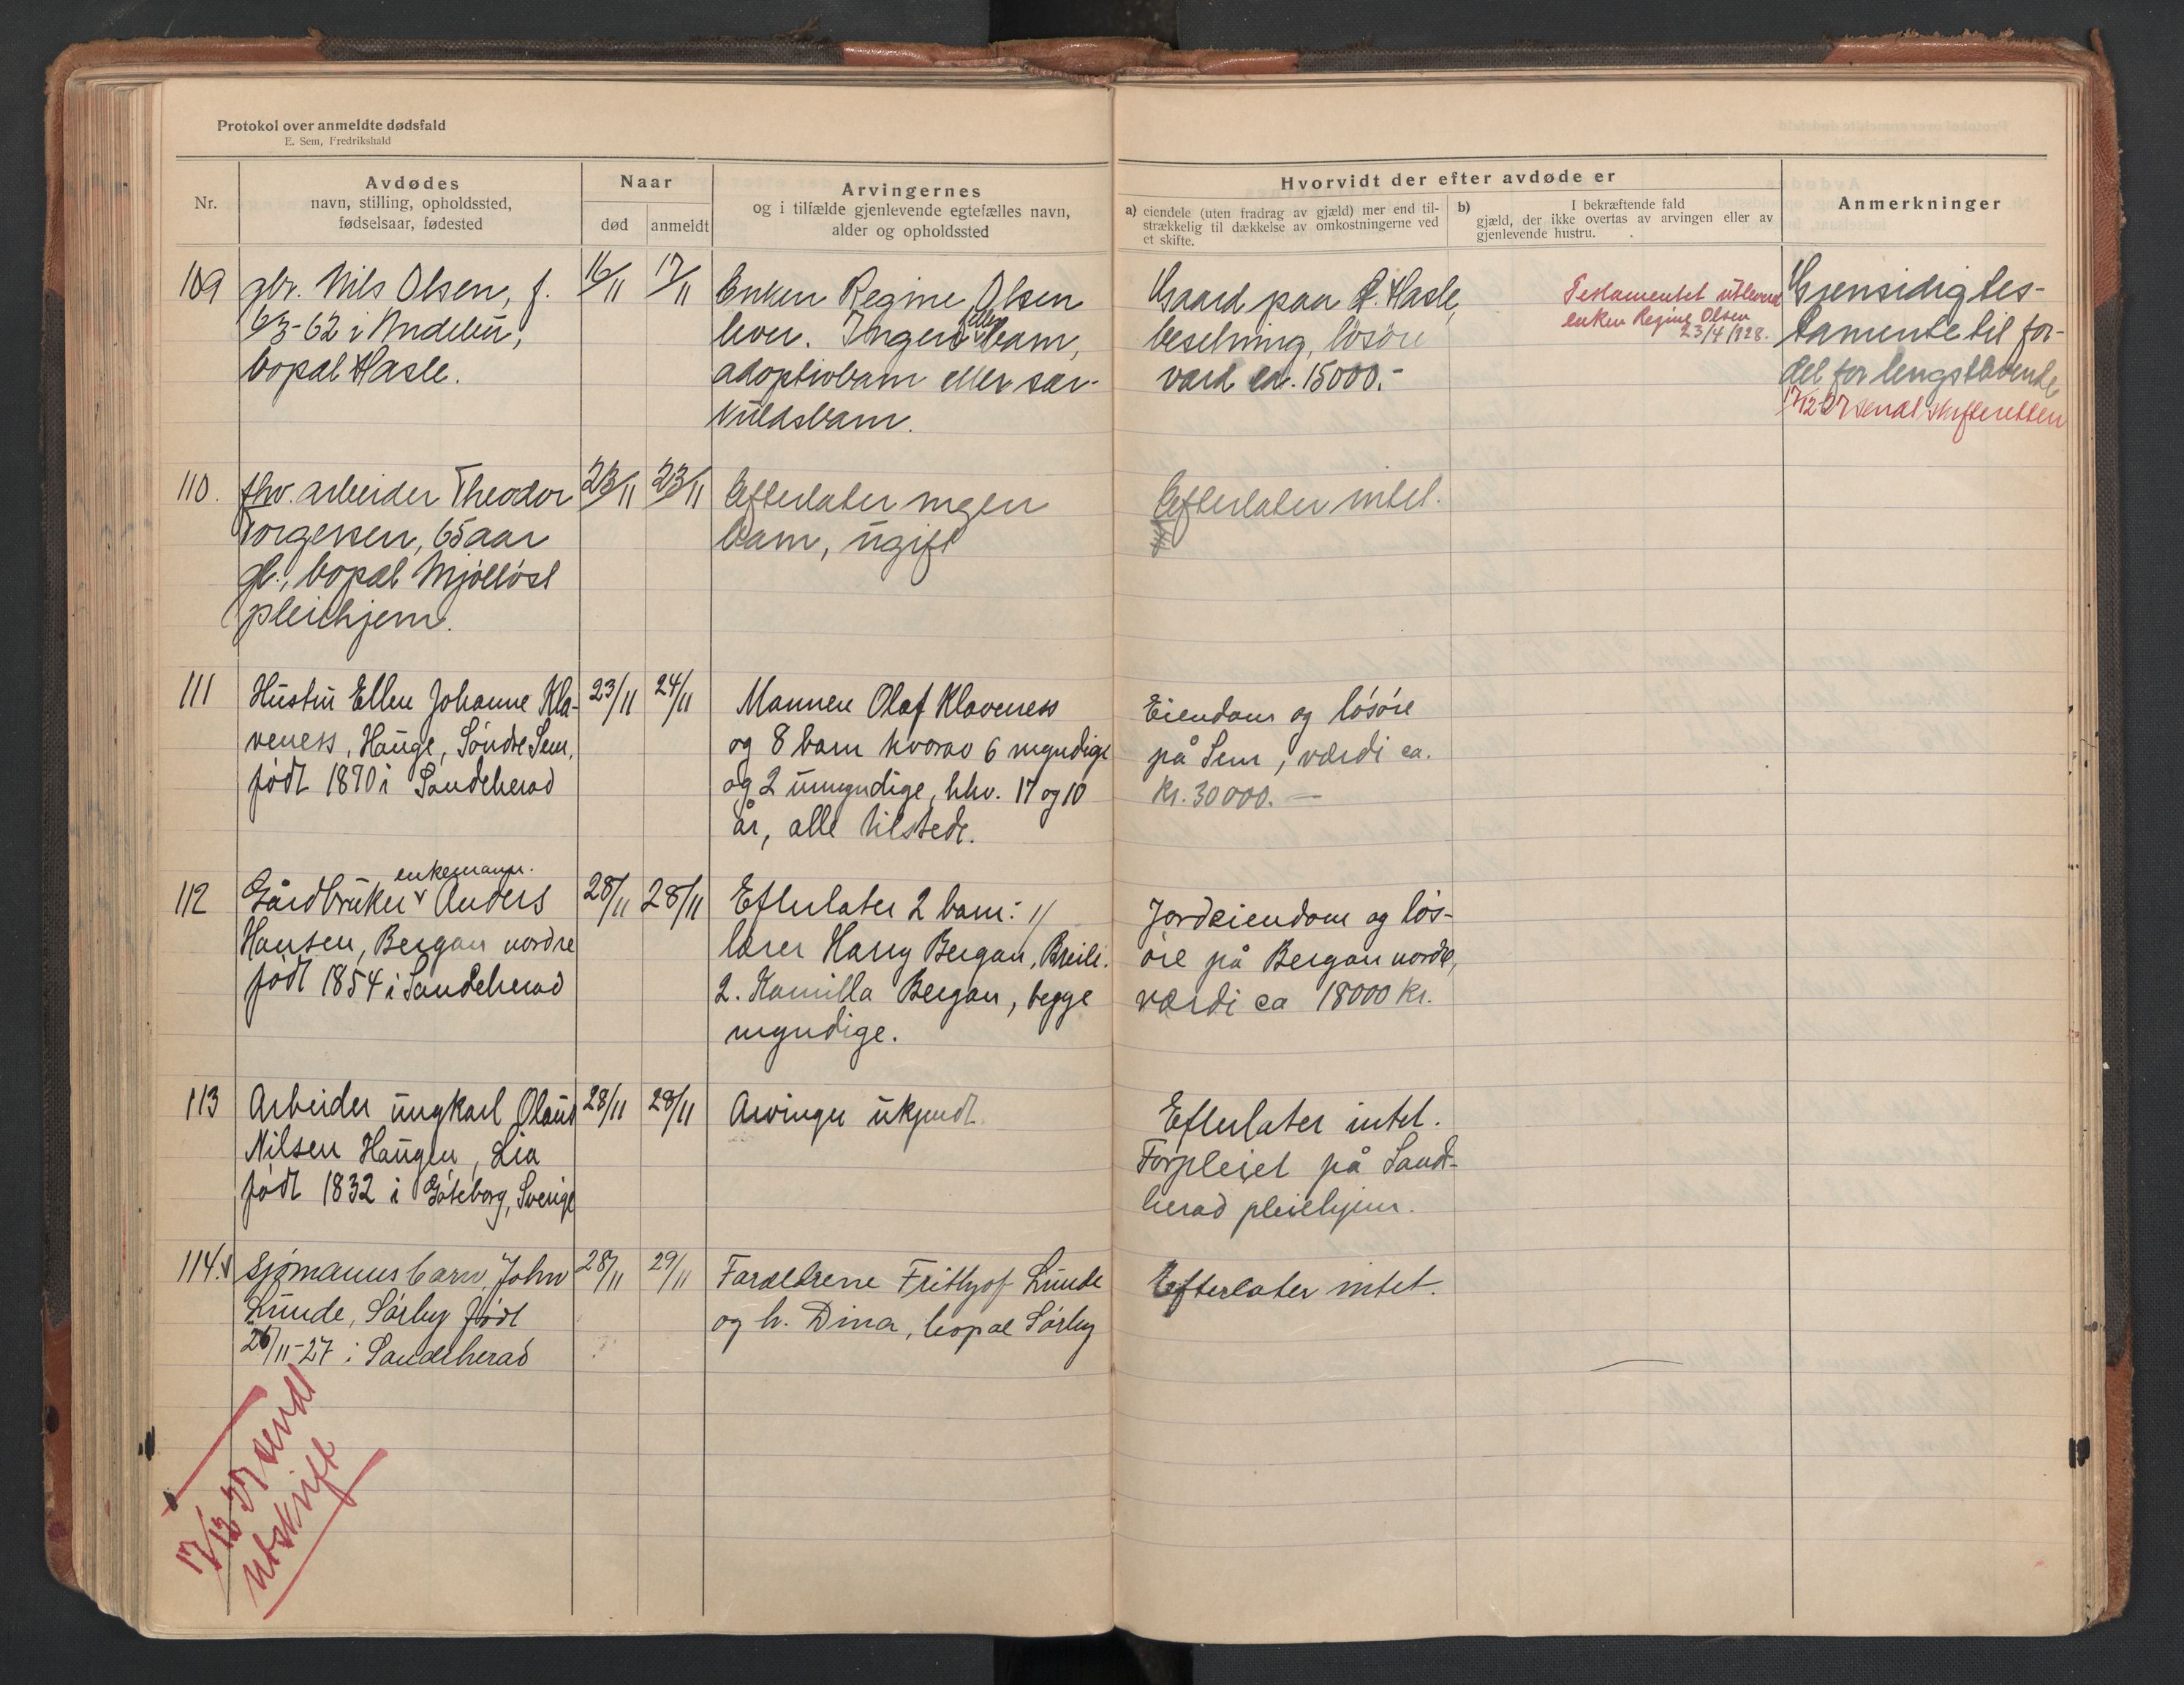 Protokol over anmeldte dødsfald
E. Sem, Fredrikshald
Nr.
Avdødes
navn, stilling, opholdssted,
fødselsaar, fødested
Naar
død
anmeldt
Arvingernes
og i tilfælde gjenlevende egtefælles navn,
alder og opholdssted
Hvorvidt der efter avdøde er
a) eiendele (uten fradrag av gjæld) mer end til-
strækkelig til dækkelse av omkostningerne ved
et skifte.
b) I bekræftende fald
gjæld, der ikke overtas av arvingen eller av
gjenlevende hustru.
Anmerkninger
109
gbr. Nils Olsen, f.
6/3-62 i Andebu,
bopal Hasle.
16/11
17/11
Enken Regine Olsen
lever. Ingen felles barn,
adoptivbarn eller sær-
kuldsbarn.
Gaard paa Ø. Hasle,
besetning, løsøre
værd ca. 15000.-
Testamentet utlevert
enken Regine Olsen
23/4 1928.
Gjensidig tes-
tamente til for-
del for lengstlevende
17/12-27 sendt skifteretten
110.
fhv. arbeider Theodor
Torgersen, 65 aar
gl., bopæl Mjølløst
pleiehjem.
23/11
23/11
Efterlater ingen
barn, ugift
Efterlater intet.
111
Hustru Ellen Johanne Kla-
veness, Hauge, Søndre Sem,
født 1870 i Sandeherad
23/11
24/11
Mannen Olaf Klaveness
og 8 barn hvorav 6 myndige
og 2 umyndige, hhv. 17 og 10
år, alle tilstede.
Eiendom og løsøre
på Sem, værdi ca.
Kr. 30000.—
112
enkemann.
Gårdbruker v Anders
Hansen, Bergan nordre
født 1854 i Sandeherad
28/11
28/11
Efterlater 2 barn: 1/
lærer Harry Bergan, Breili.
2. Kamilla Bergan, begge
myndige.
Jordeiendom og løs-
øre på Bergan nordre,
værdi ca 18000 kr.
113
Arbeider ungkarl Olaus
Nilsen Haugen, Lia
født 1832 i Göteborg, Sverige
28/11
28/11
Arvinger ukjendt.
Efterlater intet.
Forpleiet på Sand-
herad pleiehjem.
114.
sjømannsbarn John
Lunde, Sørby født
26/11-27 i Sandeherad
28/11
29/11
Forældrene Frithjof Lunde
og h. Dina, bopæl Sørby
Efterlater intet.
17/12-27 sendt
utskrift